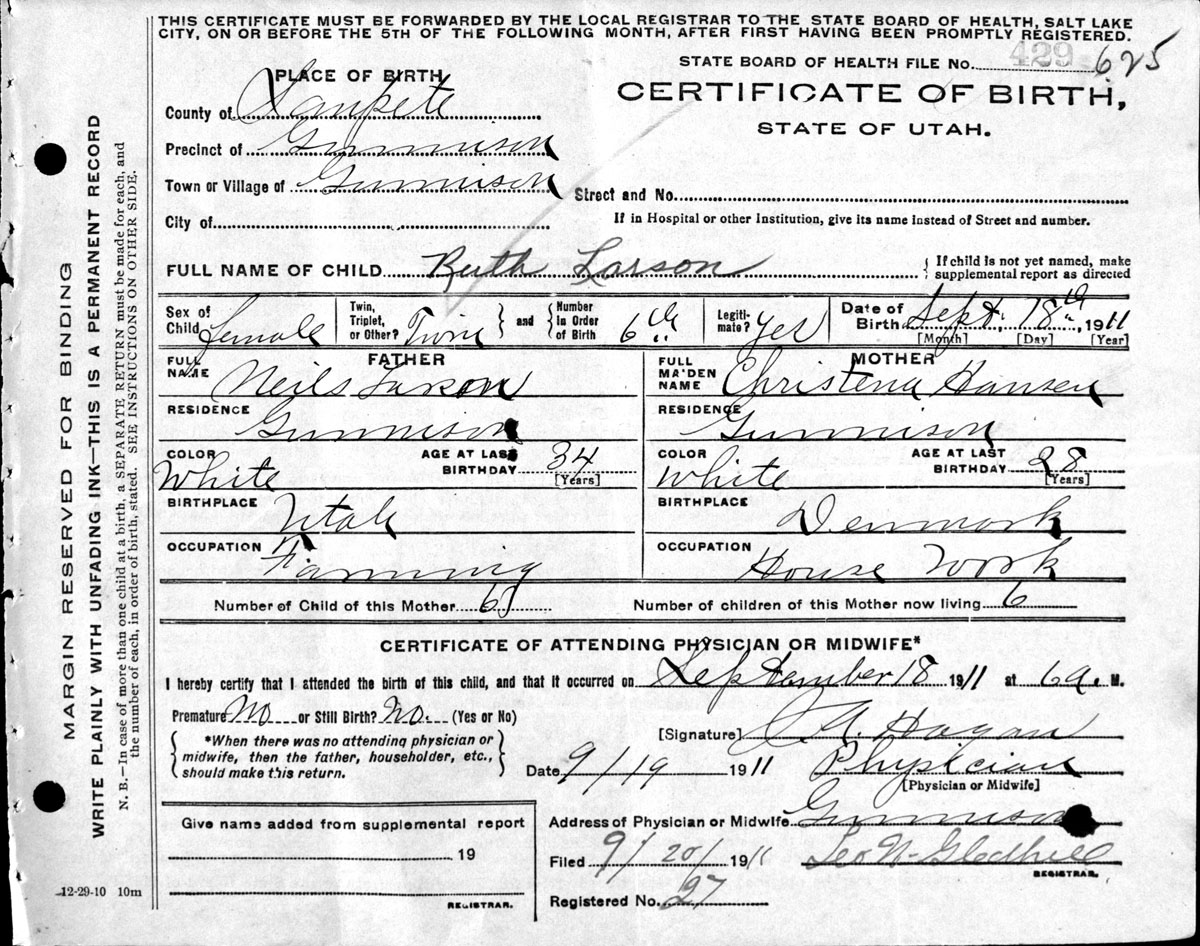 THIS CERTIFICATE MUST BE FORWARDED BY THE LOCAL REGISTRAR TO THE STATE BOARD OF HEALTH, SALT LAKE
CITY, ON OR BEFORE THE 5TH OF THE FOLLOWING MONTH, AFTER FIRST HAVING BEEN PROMPTLY REGISTERED.
STATE BOARD OF HEALTH FILE No. 429 625
PLACE OF BIRTH
CERTIFICATE OF BIRTH,
STATE OF UTAH.
County of Sanpete
Precinct of Gunnison
Town or Village of Gunnison
Street and No.
City of
If in Hospital or other Institution, give its name instead of Street and number.
FULL NAME OF CHILD Ruth Larson
{ If child is not yet named, make
supplemental report as directed
Sex of Child female
Twin, Triplet, or Other? Twin } and { Number in Order of Birth 6th
Legiti-mate? Yes
Date of Birth Sept. 18th, 1911
[Month] [Day] [Year]
FATHER
FULL NAME Neils Larson
RESIDENCE Gunnison
COLOR White
AGE AT LAST BIRTHDAY 34
[Years]
BIRTHPLACE Utah
OCCUPATION Farming
MOTHER
FULL MAIDEN NAME Christena Hansen
RESIDENCE Gunnison
COLOR White
AGE AT LAST BIRTHDAY 28
[Years]
BIRTHPLACE Denmark
OCCUPATION House Work
Number of Child of this Mother 6
Number of children of this Mother now living 6
CERTIFICATE OF ATTENDING PHYSICIAN OR MIDWIFE*
I hereby certify that I attended the birth of this child, and that it occurred on September 18 1911 at 6 a. M.
Premature No or Still Birth? No. (Yes or No)
*When there was no attending physician or
midwife, then the father, householder, etc.,
should make this return.
[Signature] A. Hagan
Date 9/19 1911 Physician
[Physician or Midwife]
Give name added from supplemental report
19
REGISTRAR.
Address of Physician or Midwife Gunnison
Filed 9/20/ 1911 Leo N. Gledhill
REGISTRAR.
Registered No. 27
12-29-10 10m
MARGIN RESERVED FOR BINDING
WRITE PLAINLY WITH UNFADING INK—THIS IS A PERMANENT RECORD
N. B.—In case of more than one child at a birth, a SEPARATE RETURN must be made for each, and
the number of each, in order of birth, stated. SEE INSTRUCTIONS ON OTHER SIDE.